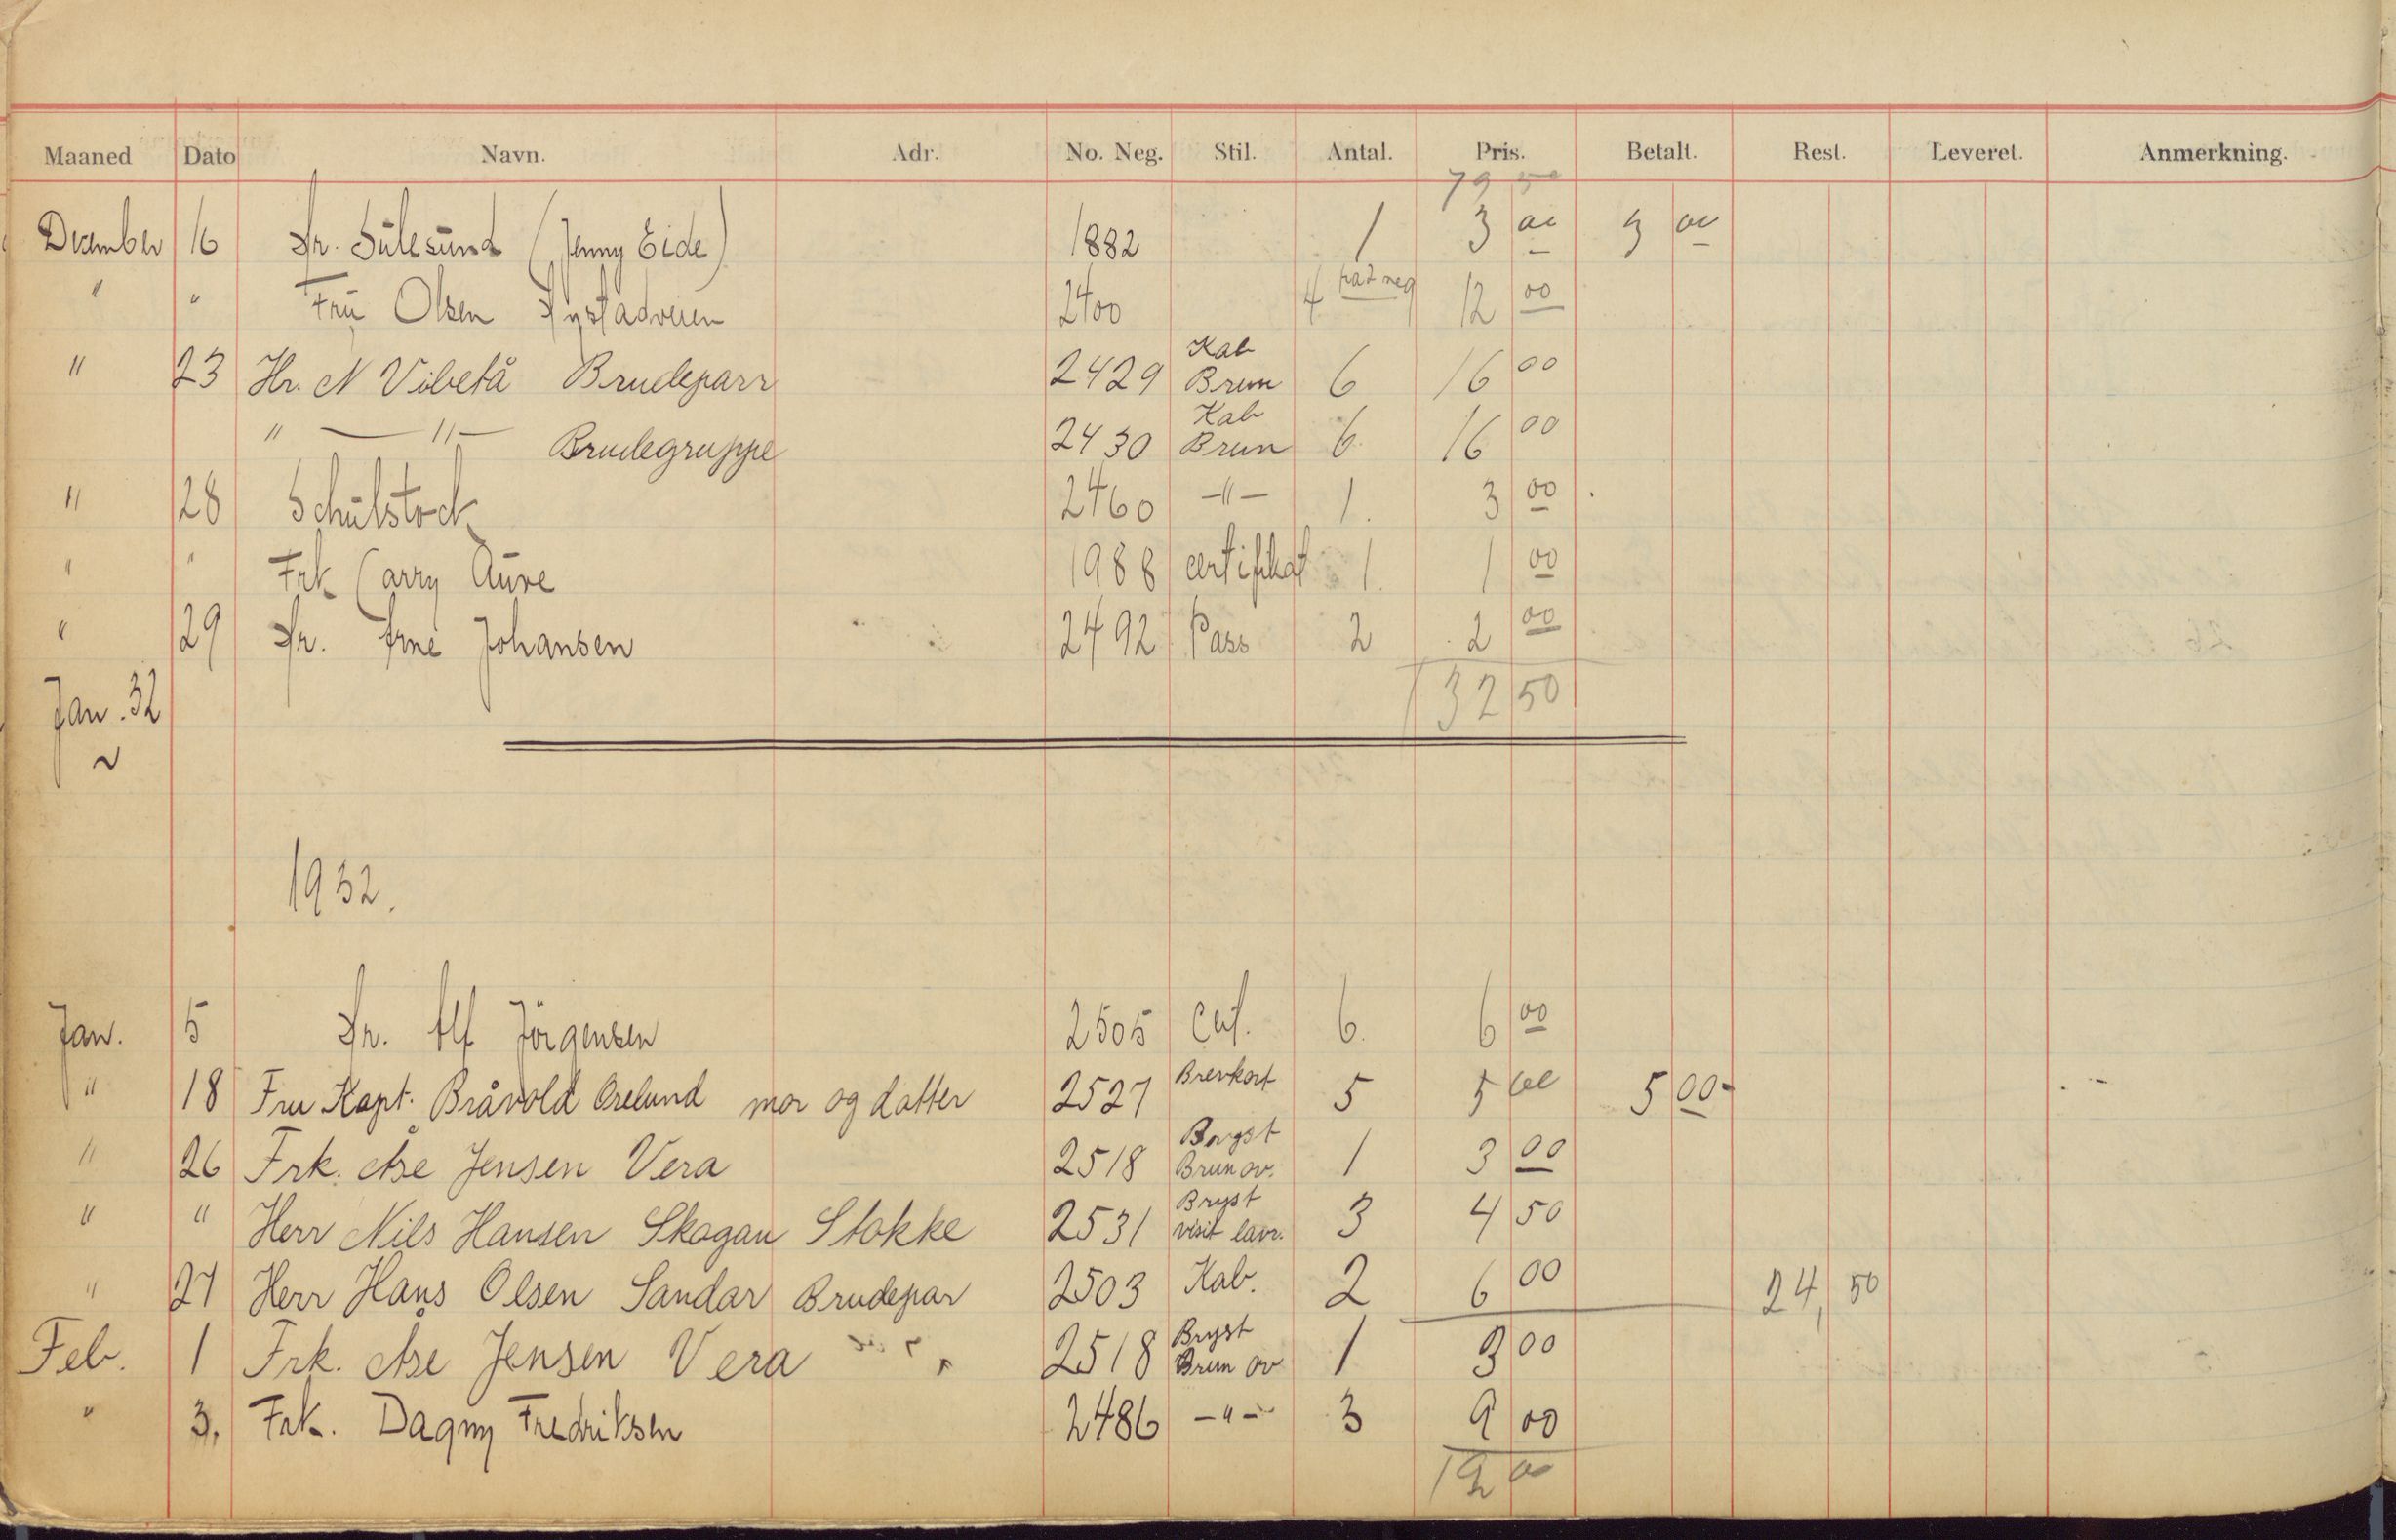 Maaned Dato Navn. Adr. No. Neg. Stil. Antal. Pris. Betalt. Rest. Leveret. Anmerkning.
79 50
December 16 Hr. Sulesund (Jenny Eide) 1882 1 3 00 3 00
" " Fru Olsen Nystadveien 2400 4 fra 2 neg 12 00
" 23 Hr. N Vibetå Brudeparr 2429 Kab Brun 6 16 00
" —"— Brudegruppe 2430 Kab Brun 6 16 00
" 28 Schulstock 2460 —"— 1. 3 00
" " Frk Carry Aure 1988 certifikat 1 1 00
" 29 Hr. Arne Johansen 2492 Pass 2 2 00
Jan. 32 132 50
1932.
Jan. 5 Hr. Alf Jörgensen 2505 Cert. 6. 6 00
" 18 Fru Kapt. Bråvold Orelund mor og datter 2527 Brevkort 5 5 00 5 00-
" 26 Frk. Åse Jensen Vera 2518 Bryst Brun ov. 1 3 00
" " Herr Nils Hansen Skogan Stokke 2531 Bryst visit lavr. 3 4 50
" 27 Herr Hans Olsen Sandar Brudepar 2503 Kab. 2 6 00 24,50
Feb. 1 Frk. Åse Jensen Vera 2518 Bryst Brun ov 1 3 00
" 3. Frk. Dagny Fredriksen 2486 —"— 3 9 00
12 00